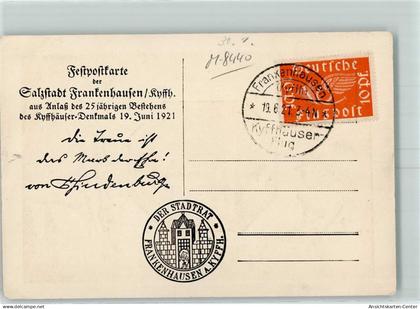 31. 1.
M-8440
Festpostkarte
der
Salzstadt Frankenhausen/Kyffh.
aus Anlaß des 25 jährigen Bestehens
des Kyffhäuser-Denkmals 19. Juni 1921
die Treue ist
das Mark der Ehre!
von Hindenburg
Deutsche
Flugpost
Frankenhausen
(Kyffh.)
* 19.6.21 2-4N *
Kyffhäuser
Flug
DER STADTRAT
FRANKENHAUSEN A. KYFFH.
Ansichtskarten-Center